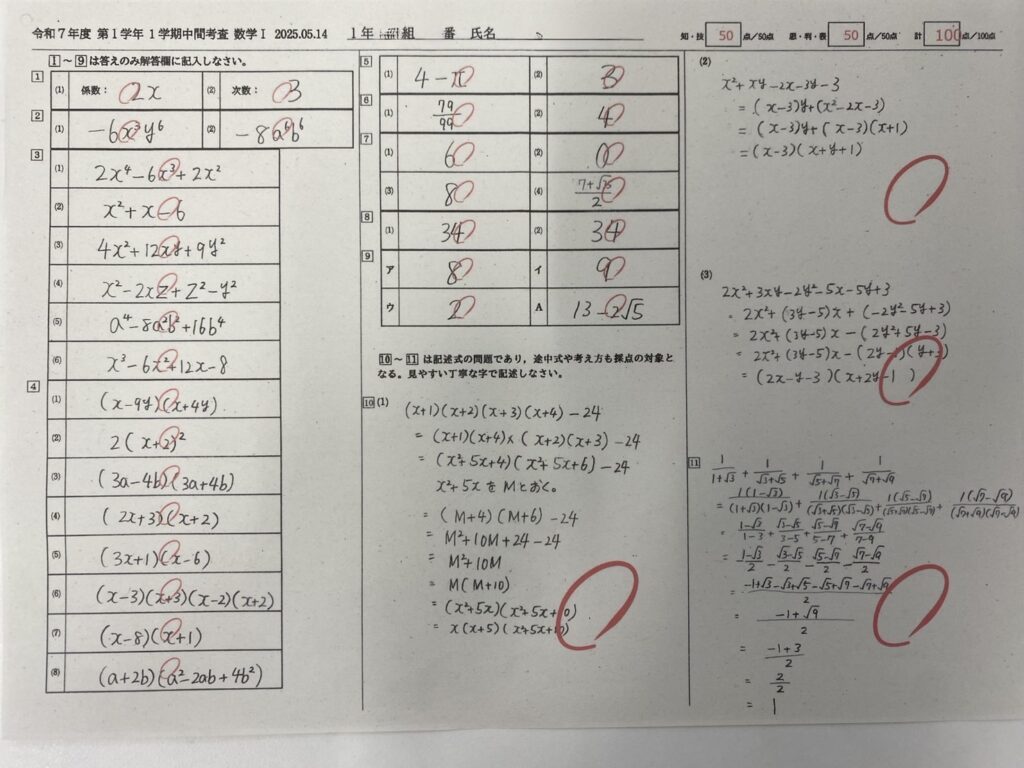 令和7年度 第1学年 1学期中間考査 数学Ⅰ 2025.05.14 1年 組 番 氏名
知・技 50 点/50点 思・判・表 50 点/50点 計 100 点/100点
1 ～ 9 は答えのみ解答欄に記入しなさい。
1 (1) 係数： 2x (2) 次数： 3
2 (1) -6x³y⁶ (2) -8a⁶b⁶
3 (1) 2x⁴-6x³+2x²
(2) x²+x-6
(3) 4x²+12xy+9y²
(4) x²-2xz+z²-y²
(5) a⁴-8a²b²+16b⁴
(6) x³-6x²+12x-8
4 (1) (x-9y)(x+4y)
(2) 2(x+2)²
(3) (3a-4b)(3a+4b)
(4) (2x+3)(x+2)
(5) (3x+1)(x-6)
(6) (x-3)(x+3)(x-2)(x+2)
(7) (x-8)(x+1)
(8) (a+2b)(a²-2ab+4b²)
5 (1) 4-π (2) 3
6 (1) 79/99 (2) 4
7 (1) 6 (2) 0
(3) 8 (4)
8 (1) 34 (2) 34
9 ア 8 イ 9
ウ 2 A 13-2√5
10 ～ 11 は記述式の問題であり，途中式や考え方も採点の対象と
なる。見やすい丁寧な字で記述しなさい。
10 (1) (x+1)(x+2)(x+3)(x+4)-24
= (x+1)(x+4)×(x+2)(x+3)-24
= (x²+5x+4)(x²+5x+6)-24
x²+5xをMとおく。
= (M+4)(M+6)-24
= M²+10M+24-24
= M²+10M
= M(M+10)
= (x²+5x)(x²+5x+10)
= x(x+5)(x²+5x+10)
(2)
x²+xy-2x-3y-3
= (x-3)y+(x²-2x-3)
= (x-3)y+(x-3)(x+1)
= (x-3)(x+y+1)
(3)
2x²+3xy-2y²-5x-5y+3
= 2x²+(3y-5)x+(-2y²-5y+3)
= 2x²+(3y-5)x-(2y²+5y-3)
= 2x²+(3y-5)x-(2y-1)(y+3)
= (2x-y-3)(x+2y-1)
11 1/(1+√3) + 1/(√3+√5) + 1/(√5+√7) + 1/(√7+√9)
= 1(1-√3)/(1+√3)(1-√3) + 1(√3-√5)/(√3+√5)(√3-√5) + 1(√5-√7)/(√5+√7)(√5-√7) + 1(√7-√9)/(√7+√9)(√7-√9)
= (1-√3)/(1-3) + (√3-√5)/(3-5) + (√5-√7)/(5-7) + (√7-√9)/(7-9)
= -(1-√3)/2 - (√3-√5)/2 - (√5-√7)/2 - (√7-√9)/2
= (-1+√3-√3+√5-√5+√7-√7+√9)/2
= (-1+√9)/2
= (-1+3)/2
= 2/2
= 1